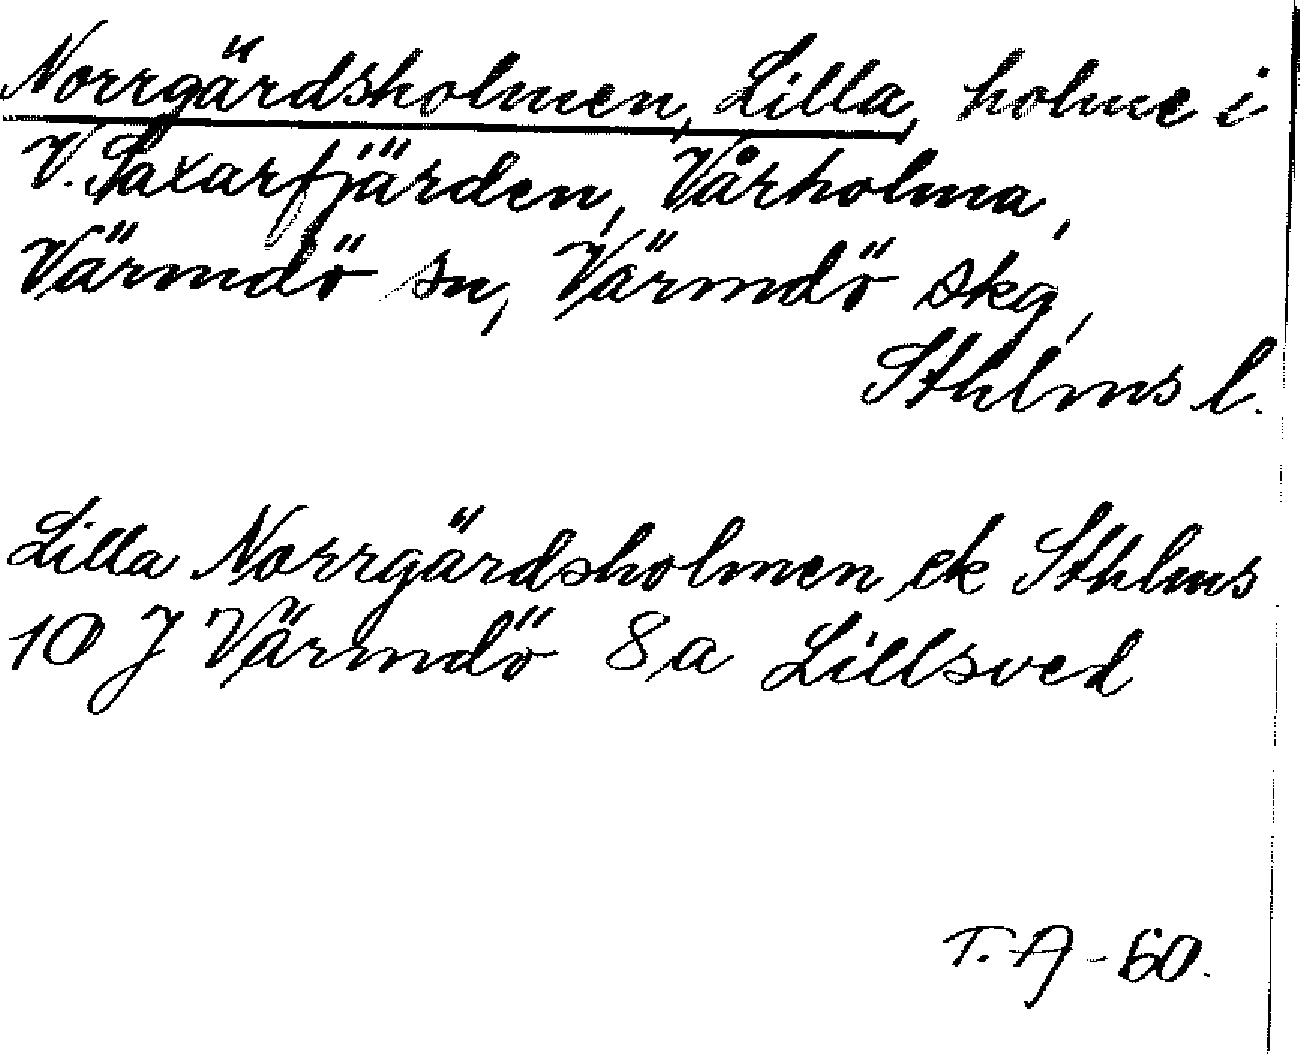 Norrgärdsholmen, Lilla, holme i
V. Saxarfjärden, Vårholma,
Värmdö sn, Värmdö skg,
Sthlms l.
Lilla Norrgärdsholmen ek Sthlms
10 J Värmdö 8a Lillsved
T. A - 60.